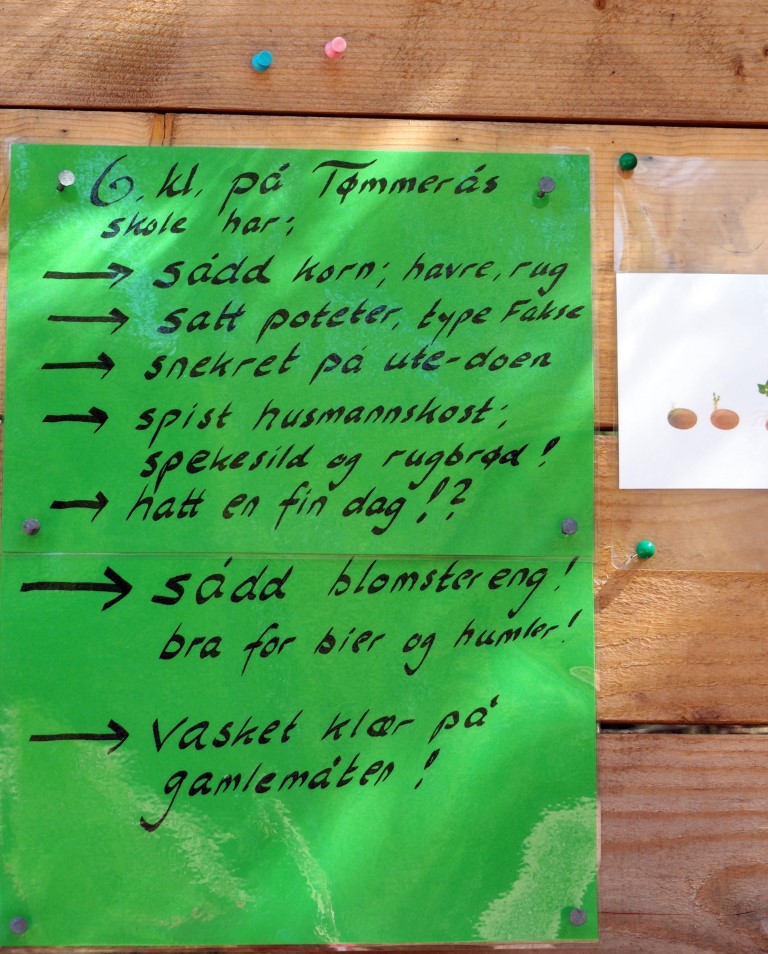 6. kl. på Tømmerås
skole har:
→ sådd korn; havre, rug
→ satt poteter, type Fakse
→ snekret på ute-doen
→ spist husmannskost;
spekesild og rugbrød!
→ hatt en fin dag!?
→ sådd blomstereng!
bra for bier og humler!
→ Vasket klær på
gamlemåten!